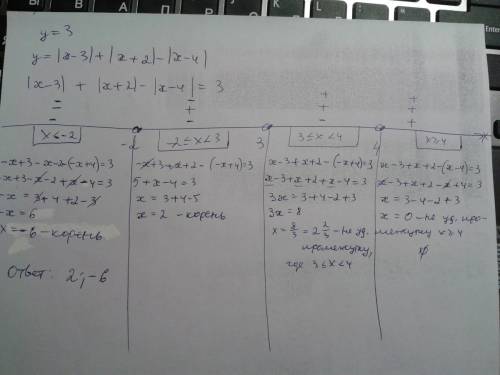 y = 3
y = |x-3| + |x+2| - |x-4|
|x-3| + |x+2| - |x-4| = 3
- - +  +
- + +  +
- - -  +
x ≤ -2
-2
-2 ≤ x < 3
3
3 ≤ x < 4
4
x ≥ 4
x
-x+3-x-2-(-x+4)=3
-x+3-x-2+x-4=3
-x = 3+4+2-3
-x = 6
x = -6 - корень
-x+3+x+2-(-x+4)=3
5+x-4=3
x = 3+4-5
x = 2 - корень
x-3+x+2-(-x+4)=3
x-3+x+2+x-4=3
3x = 3+4-2+3
3x = 8
x = 8/3 = 2 2/3 - не уд.
промежутку,
где 3 ≤ x < 4
x-3+x+2-(x-4)=3
x-3+x+2-x+4=3
x = 3-4-2+3
x = 0 - не уд. про-
межутку x ≥ 4
Ответ: 2; -6